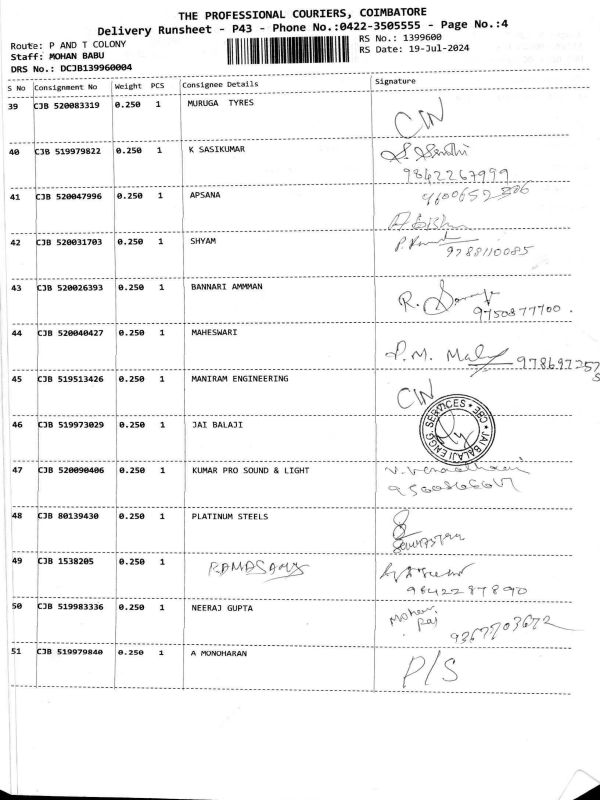 THE PROFESSIONAL COURIERS, COIMBATORE
Delivery Runsheet - P43 - Phone No.:0422-3505555 - Page No.:4
Route: P AND T COLONY
RS No.: 1399600
Staff: MOHAN BABU
RS Date: 19-Jul-2024
DRS No.: DCJB139960004
S No Consignment No Weight PCS Consignee Details Signature
39 CJB 520083319 0.250 1 MURUGA TYRES
CIN
40 CJB 519979822 0.250 1 K SASIKUMAR
9842267999
41 CJB 520047996 0.250 1 APSANA
42 CJB 520031703 0.250 1 SHYAM
9788110085
43 CJB 520026393 0.250 1 BANNARI AMMMAN
R.
9750877700.
44 CJB 520040427 0.250 1 MAHESWARI
P.M.
45 CJB 519513426 0.250 1 MANIRAM ENGINEERING
CIN
46 CJB 519973029 0.250 1 JAI BALAJI
JAI BALAJI ENGG. SERVICES * CBE *
47 CJB 520090406 0.250 1 KUMAR PRO SOUND & LIGHT
48 CJB 80139430 0.250 1 PLATINUM STEELS
49 CJB 1538205 0.250 1 RAMASAMY
9842287890
50 CJB 519983336 0.250 1 NEERAJ GUPTA
Mohan
Raj
9367703672
51 CJB 519979840 0.250 1 A MONOHARAN
P/S